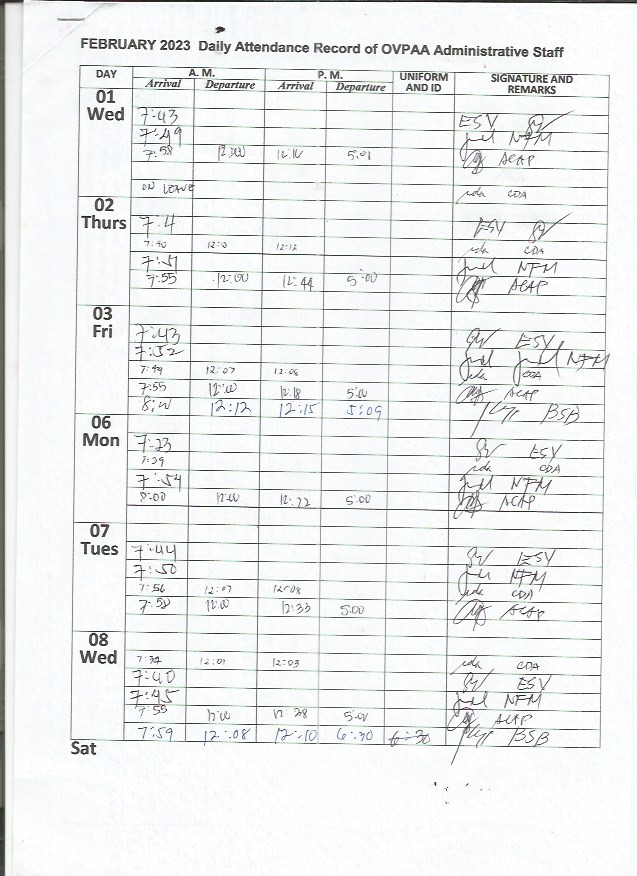 FEBRUARY 2023 Daily Attendance Record of OVPAA Administrative Staff
DAY A. M. P. M. UNIFORM AND ID SIGNATURE AND REMARKS
Arrival Departure Arrival Departure
01 Wed
7:43 ESV
7:49 NFM
7:58 12:00 12:16 5:01 ACAP
ON LEAVE CDA
02 Thurs
7:4 ESV
7:40 12:0 12:12 CDA
7:51 NFM
7:55 12:00 12:44 5:00 ACAP
03 Fri
7:43 ESV
7:52 NFM
7:49 12:07 12:08 CDA
7:55 12:00 12:18 5:00 ACAP
8:00 12:12 12:15 5:09 BSB
06 Mon
7:23 ESV
7:39 CDA
7:54 NFM
8:00 12:00 12:22 5:00 ACAP
07 Tues
7:44 ESV
7:50 NFM
7:56 12:07 12:08 CDA
7:58 12:00 12:33 5:00 ACAP
08 Wed
7:37 12:01 12:03 CDA
7:40 ESV
7:45 NFM
7:55 12:00 12:38 5:00 ACAP
7:59 12:08 12:10 6:30 6:30 BSB
Sat